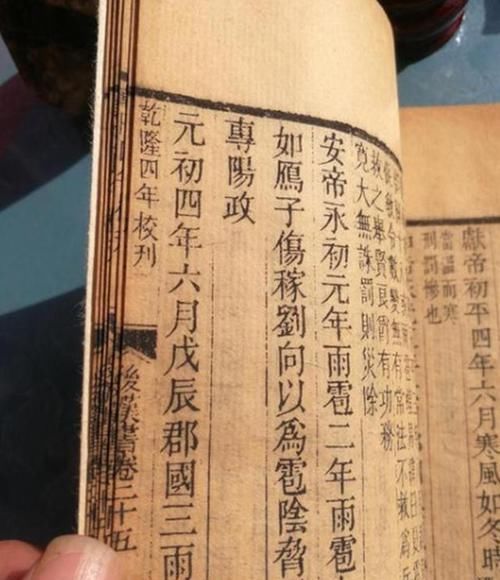 獻帝初平四年六月寒風如冬時
當溫而寒
刑罰慘也
救之舉賢良爵有功務
寬大無誅罰則災除
安帝永初元年雨雹二年雨雹
如鴈子傷稼劉向以爲雹陰脅
專陽政
元初四年六月戊辰郡國三雨
乾隆四年校刊
後漢書卷二十五